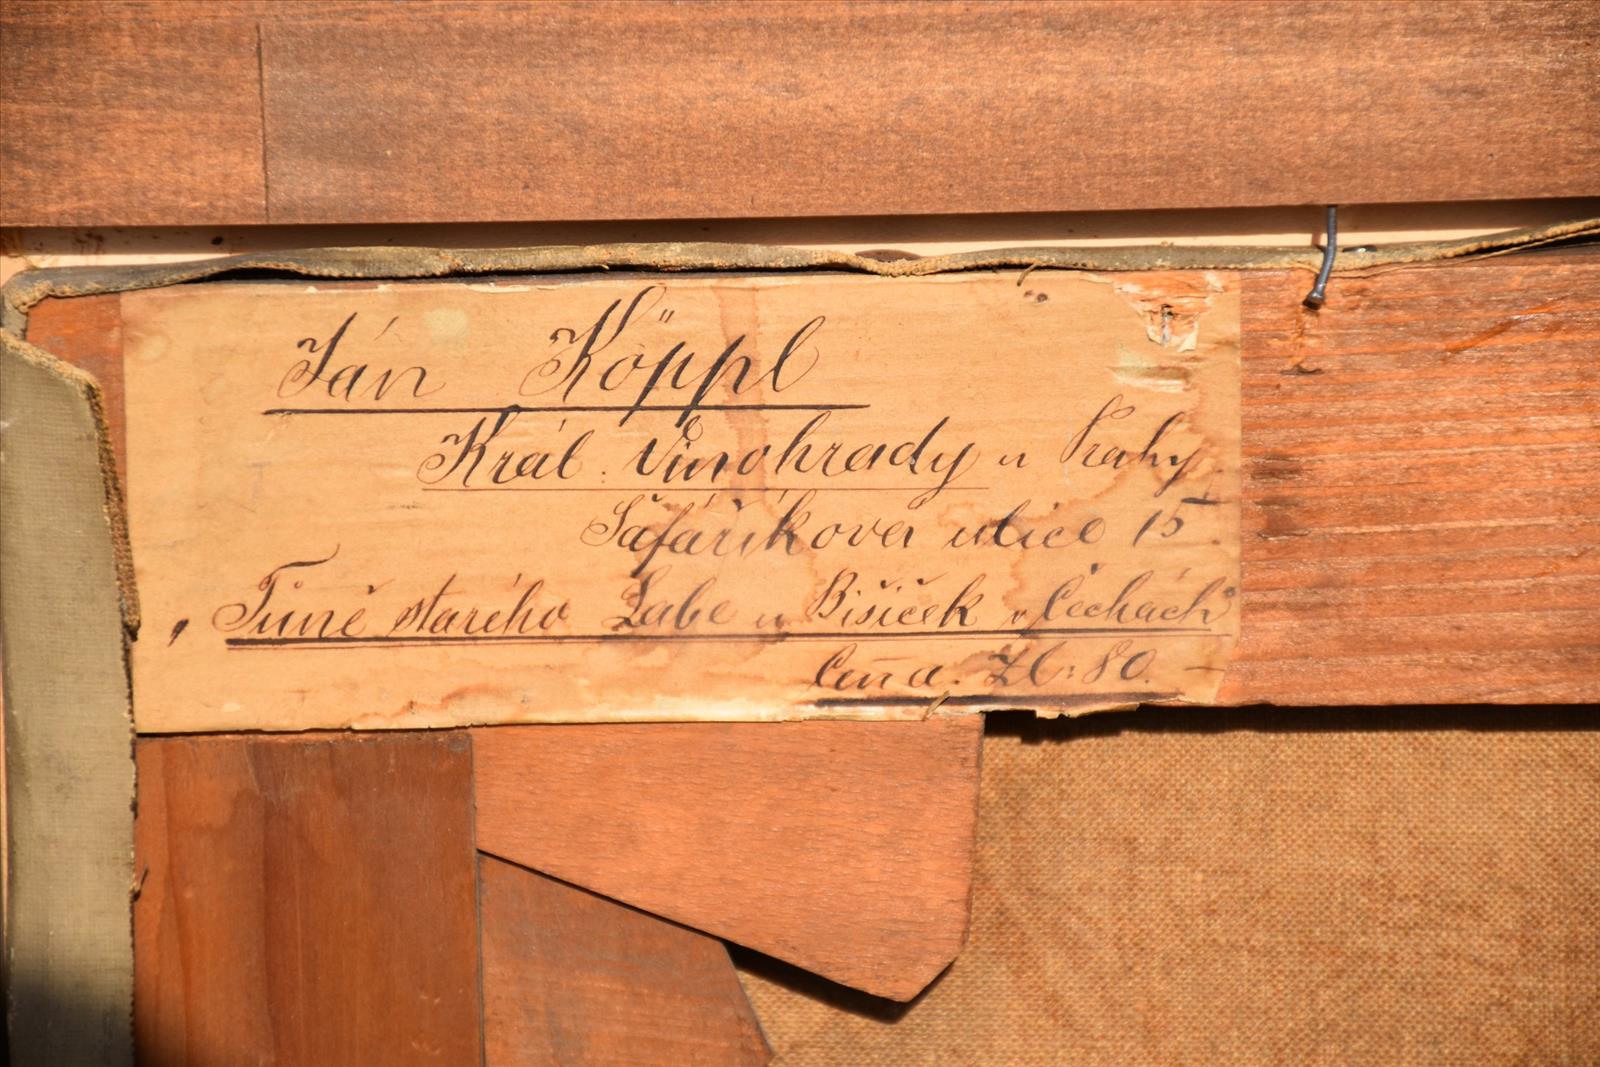 Ján Köppl
Král. Vinohrady u Prahy.
Šafaříkova ulice 15.
„Tůně starého Labe u Bišiček v Čechách"
Cena. Zl: 80. —